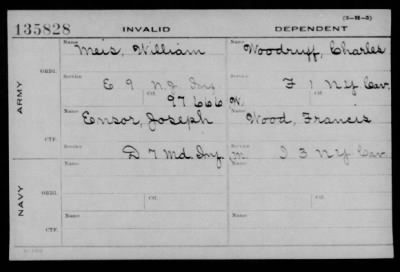 (3-H-3)
135828 INVALID DEPENDENT
Name Name
Meis, William Woodruff, Charles
ARMY
ORIG. Service Service
E 9 N.J. Inf F 1 N.Y. Cav.
Ctf. Ctf.
97666 W.
Name Name
Ensor, Joseph Wood, Francis
CTF. Service Service
D 7 Md. Inf. M. I 3 N.Y. Cav.
Name Name
NAVY
ORIG. Ctf. Ctf.
Name Name
CTF.